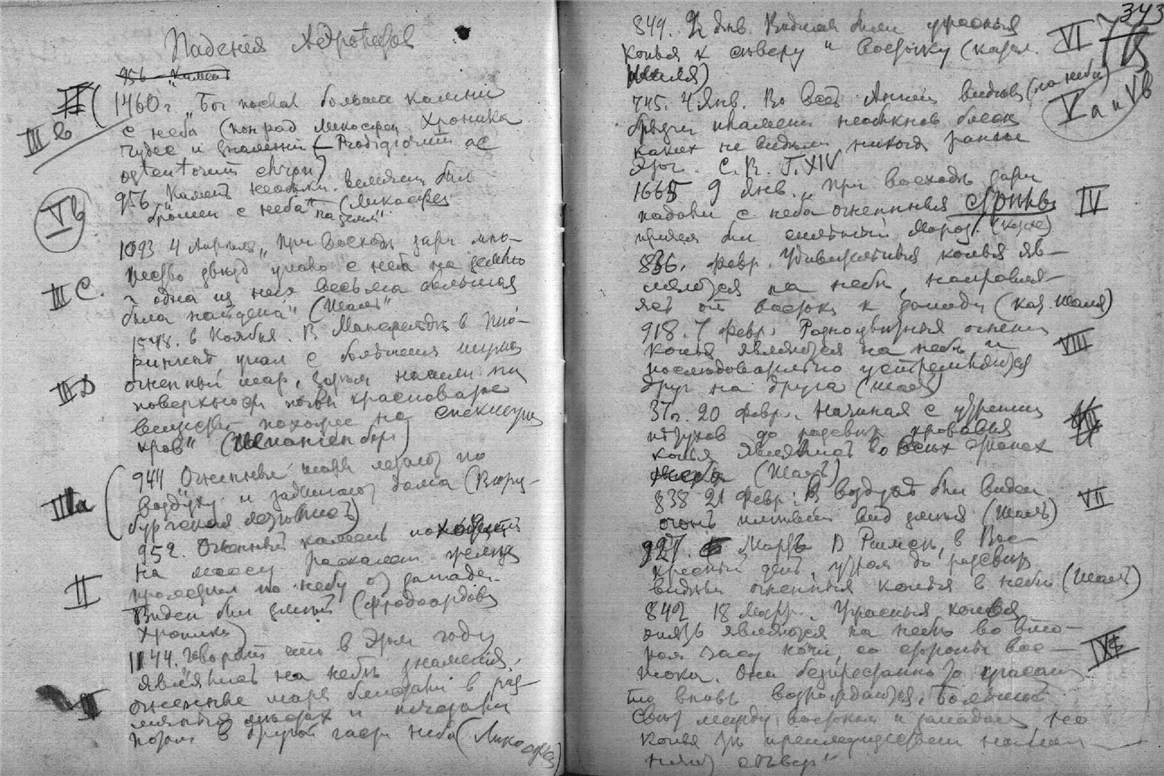 Падения Аэролитов
956 "Камень
III b
1460 г "Бог послал большие камни
с неба (Конрад Ликосфен Хроника
чудес и знамений (Prodigiorum ac
ostentorum chron)
V b
956 "Камень необыкн. величины был
брошен с неба на землю" (Ликосфен
III C.
1093 4 Апреля "При восходе зари мно-
жество звезд упало с неба на землю
и одна из них весьма большая
была найдена" (Шаль"
1548. 6 Ноября. В Мансфельде в Тю-
рингии упал с большим шумом
III D
огненный шар, потом нашли на
поверхности почвы красноватое
вещество похожее на
кровь"
III a
944 Огненные шары летали по
воздуху и зажигали дома (Вюрц-
бургская летопись)
952. Огненный камень похожий
на массу раскален железа
II
промелькнул по небу от запада.
Виден был змей (Фродоардова
Хроника)
1144. Говорят что в этом году
явились на небе знамения,
огненные шары блистали в раз-
личных местах и исчезали
потом в другой части неба (Ликосфен)
343
849. 2 Янв. Видны были ужасные
копья к северу и востоку (кат.
Шаля)
VI
745. 4 Янв. Во всей Англии видны (на небе)
V a и V b
брызги пламени необыкнов блеск
каких не видели никогда раньше
С. R. T. XIV
1665 9 Янв. "При восходе зари
падали с неба огненные стрелы
IV
притом был сильный мороз. (Каталог)
836. Февр. Удивительные копья яв-
ляются на небе, направля-
ясь от востока к западу (кат. Шаля)
918. 7 февр. Разноцветные огнен.
копья являются на небе и
VIII
последовательно устремляются
друг на друга (Шаль)
37 г. 20 февр. Начиная с утренних
петухов до рассвета кровавые
копья явились во всех странах
неба (Шаль)
838 21 февр. В воздухе был виден
VII
огонь имевший вид змея (Шаль)
927. Марта В Реймсе, в Вос-
кресный день, утром до рассвета
видны огненные копья в небе (Шаль)
842 18 Март. Ужасные копья
опять являются на небе во вто-
ром часу ночи, со стороны вос-
тока. Они беспрестанно то угасают
то вновь возрождаются,
между востоком и западом, но
копья
север"